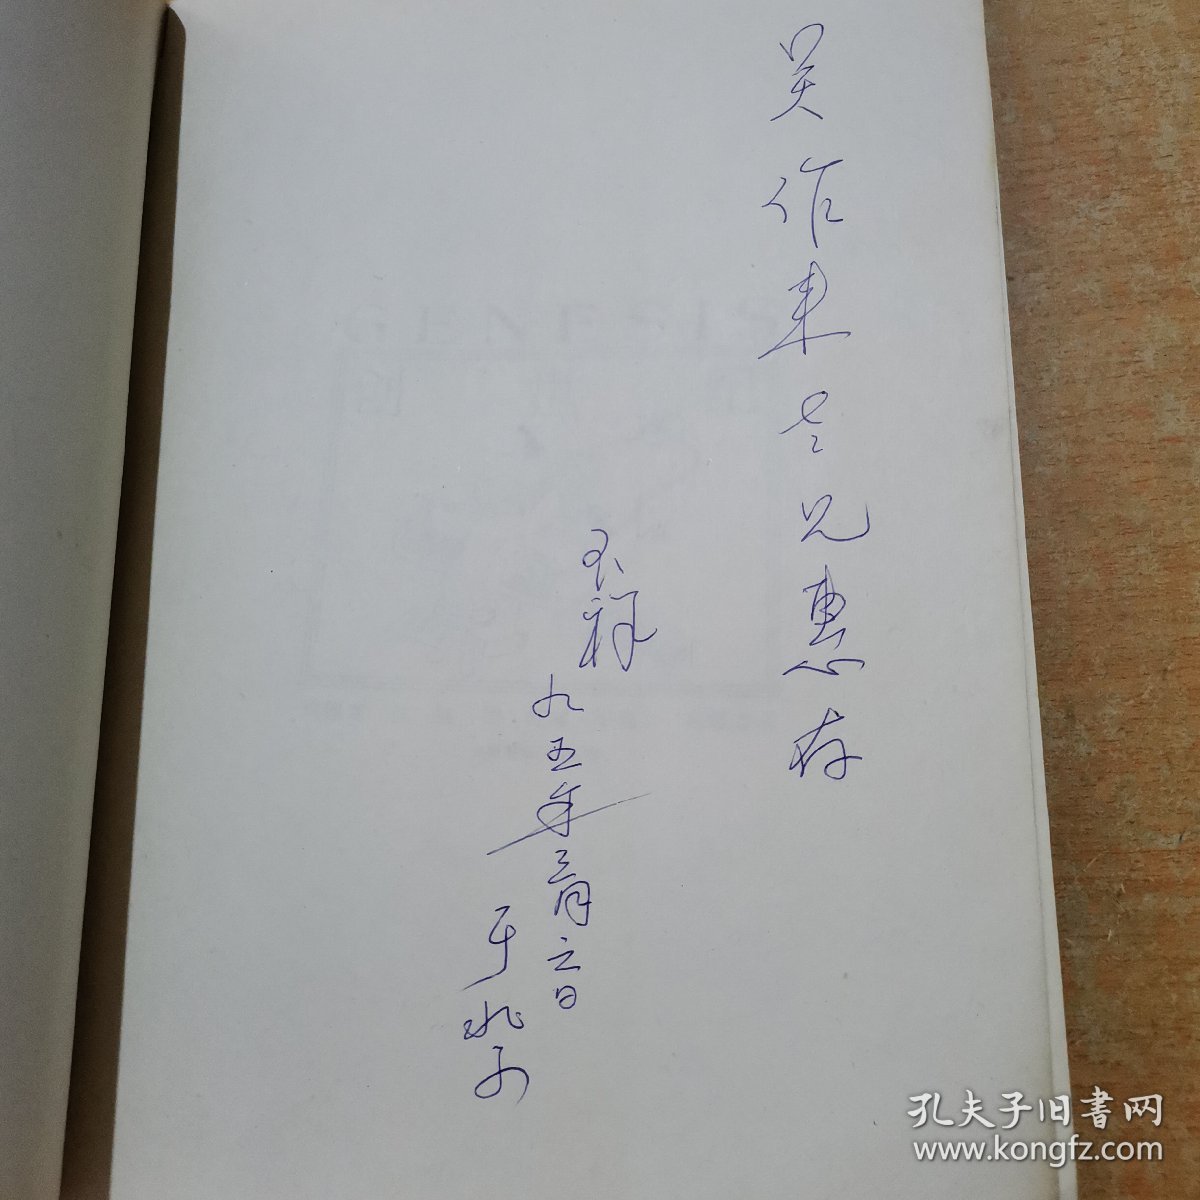 吴作来老兄惠存
玉祥
九五年三月六日
于北京
孔夫子旧书网
www.kongfz.com